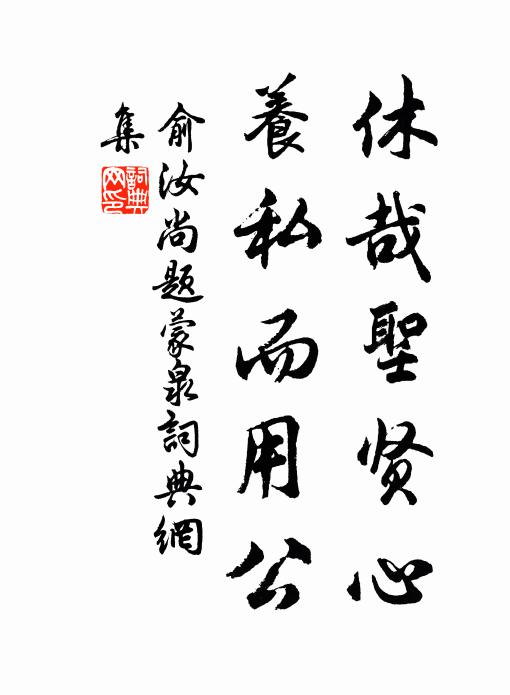 休哉聖贤心
養私而用公
俞汝尚題蒙泉詞典網
集
詞典
网印